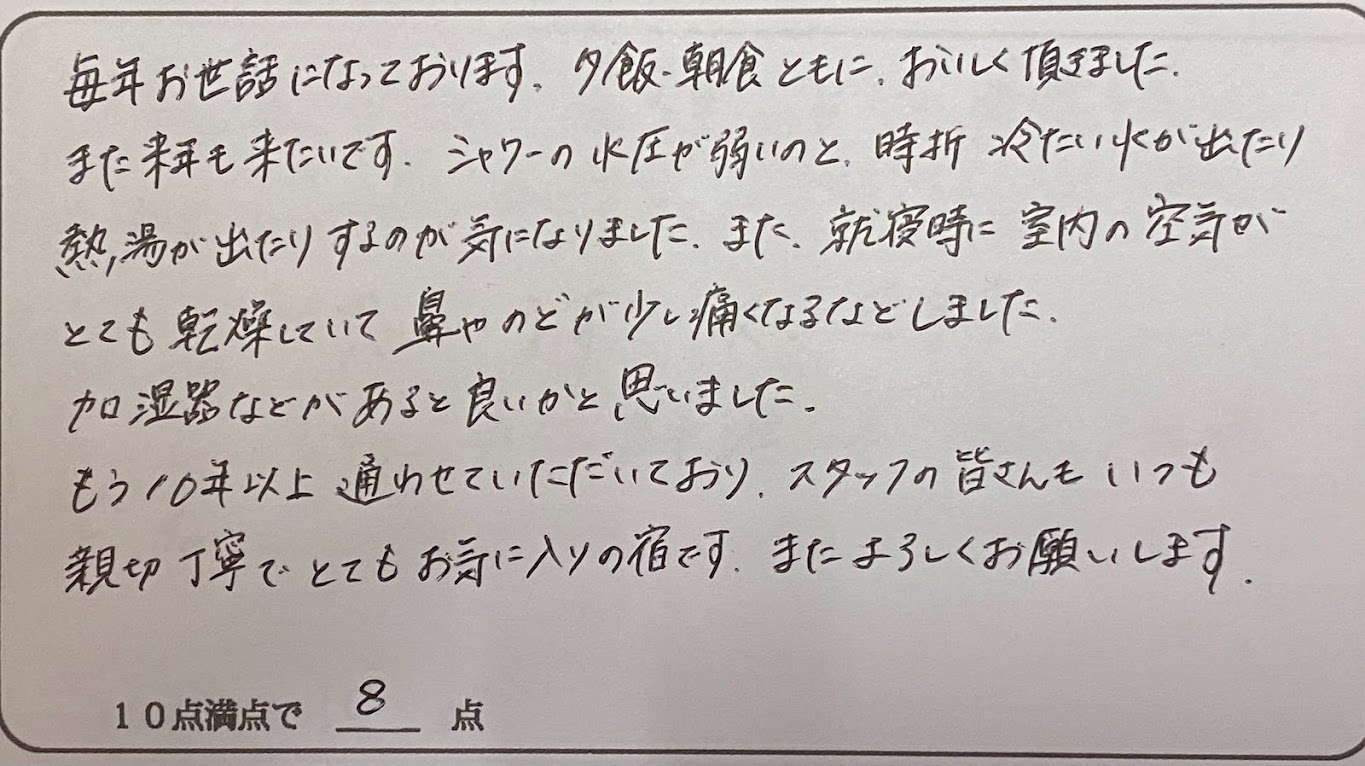 毎年お世話になっております。夕飯・朝食ともに、おいしく頂きました。
また来年も来たいです。シャワーの水圧が弱いのと、時折冷たい水が出たり
熱湯が出たりするのが気になりました。また、就寝時に室内の空気が
とても乾燥していて鼻やのどが少し痛くなるなどしました。
加湿器などがあると良いかと思いました。
もう10年以上通わせていただいており、スタッフの皆さんもいつも
親切丁寧でとてもお気に入りの宿です。またよろしくお願いします。
10点満点で 8 点